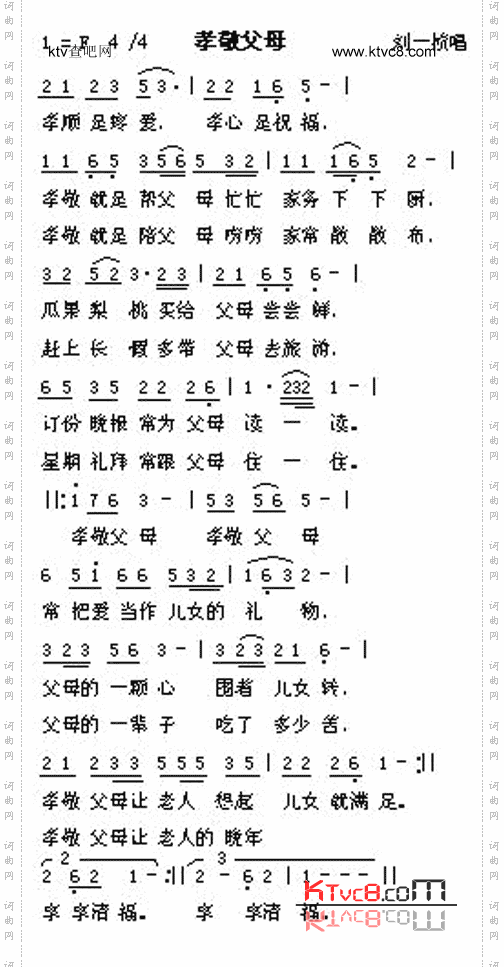 1 = F 4/4 孝敬父母 刘一祯唱
ktv查吧网 www.ktvc8.com
2 1 2 3 5 3· | 2 2 1 6 5 - |
孝顺 足疼 爱. 孝心 足祝 福.
1 1 6 5 3 5 6 5 3 2 | 1 1 1 6 5 2 - |
孝敬 就是 帮父 母 忙忙 家务 下 下 厨.
孝敬 就是 陪父 母 唠唠 家常 散 散 布.
3 2 5 2 3· 2 3 | 2 1 6 5 6 - |
瓜果 梨 桃 买给 父母 尝尝 鲜.
赶上 长 假 多带 父母 去旅 游.
6 5 3 5 2 2 2 6 | 1 · 2 3 2 1 - |
订份 晚报 常为 父母 读 一 读。
星期 礼拜 常跟 父母 住 一 住。
||: 1 7 6 3 - | 5 3 5 6 5 - |
孝敬父 母 孝敬 父 母
6 5 1 6 6 5 3 2 | 1 6 3 2 - |
常 把爱 当作 儿女的 礼 物.
3 2 3 5 6 3 - | 3 2 3 2 1 6 - |
父母的 一颗 心 围着 儿女 转.
父母的 一辈 子 吃了 多少 苦.
2 1 2 3 3 5 5 5 3 5 | 2 2 2 6 1 - :||
孝敬 父母让 老人 想起 儿女 就满 足。
孝敬 父母让 老人的 晚年
2 3
2 6 2 1 - :|| 2 - 6 2 | 1 - - - ||
享 享清 福。 享 享清 福。
KTVC8.com